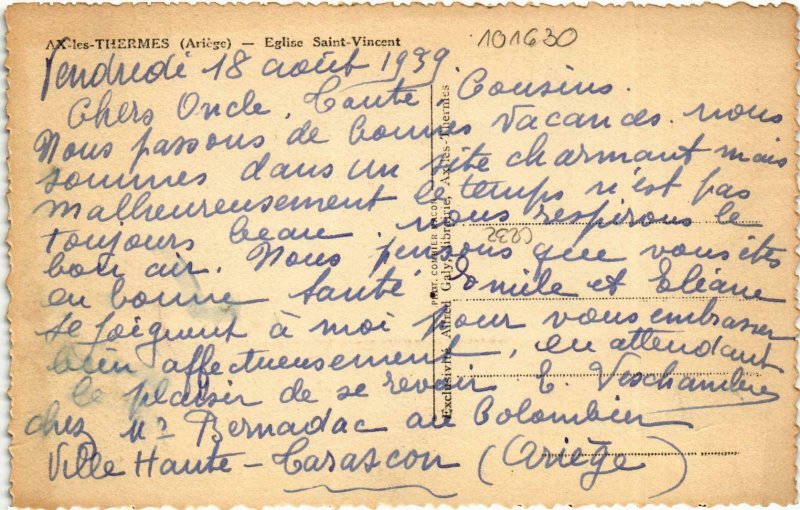 AX-les-THERMES (Ariège) — Eglise Saint-Vincent
101630
Vendredi 18 août 1939
Chers Oncle, Tante, Cousins.
Nous passons de bonnes vacances. nous
sommes dans un site charmant mais
malheureusement le temps n'est pas
toujours beau. nous respirons le
bon air. Nous pensons que vous êtes
en bonne santé Emile et Eliane
se joignent à moi pour vous embrasser
bien affectueusement, en attendant
le plaisir de se revoir E. Deschambre
chez Mr Bernadac au Colombier
Ville Haute - Tarascon (Ariège)
Exclusivité Alfred Galy, Librairie, Ax-les-Thermes
PHOT. COMBIER MACON